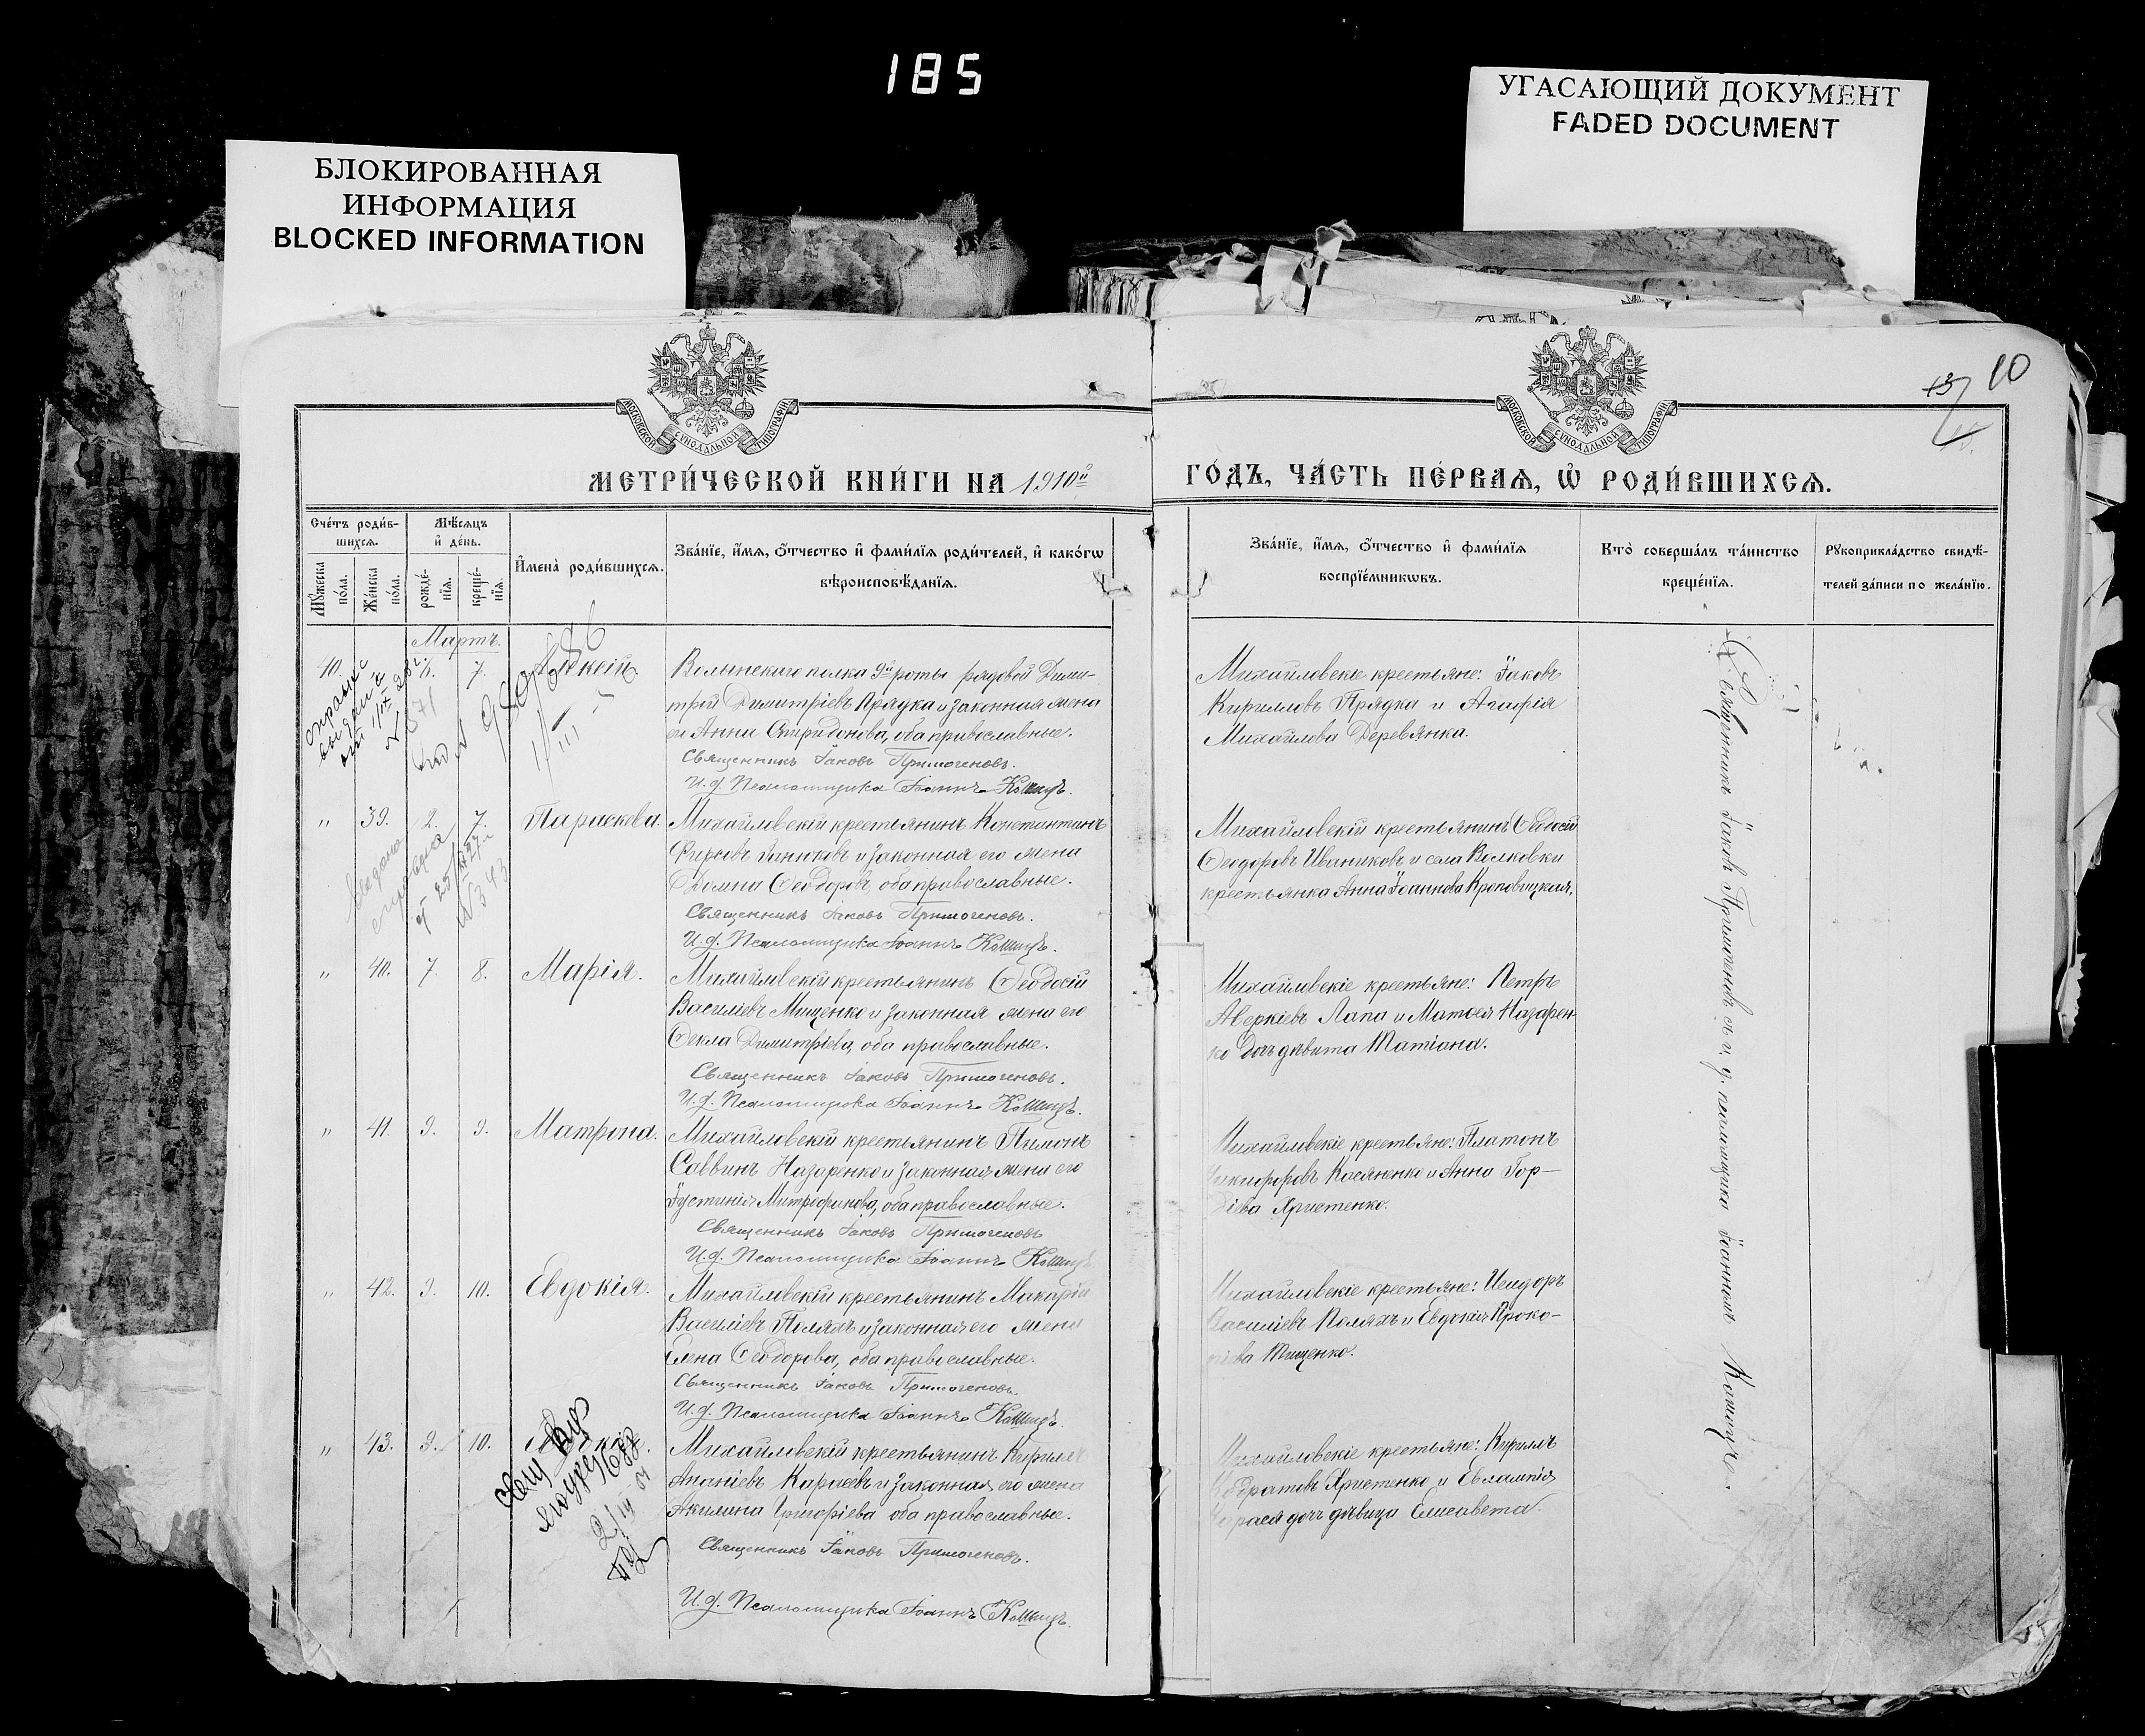 185
УГАСАЮЩИЙ ДОКУМЕНТ
FADED DOCUMENT
БЛОКИРОВАННАЯ
ИНФОРМАЦИЯ
BLOCKED INFORMATION
10
МОСКОВСКОЙ СѴНОДАЛЬНОЙ ТИПОГРАФІИ
МОСКОВСКОЙ СѴНОДАЛЬНОЙ ТИПОГРАФІИ
МЕТРИ́ЧЕСКОЙ КНИ́ГИ НА 1910й
ГО́ДЪ, ЧА́СТЬ ПЕ́РВАѦ, Ѽ РОДИ́ВШИХСѦ.
Сче́тъ роди́в-
шихсѧ.
Мꙋ́жеска по́ла.
Же́нска по́ла.
Мѣ́сѧцъ
и҆ де́нь.
рожде́-
нїѧ.
креще́-
нїѧ.
И҆мена̀ роди́вшихсѧ.
Зва́нїе, и҆́мѧ, ѻ҆́тчество и҆ фами́лїѧ роди́телей, и҆ како́гѡ
вѣроисповѣ́данїѧ.
Зва́нїе, и҆́мѧ, ѻ҆́тчество и҆ фами́лїѧ
воспрїе́мникѡвъ.
Кто̀ соверша́лъ та́инство
креще́нїѧ.
Рꙋкоприкла́дство свидѣ́-
телей за́писи по жела́нїю.
Мартъ.
10. 6. 7. Алексій.
Волынскаго полка 9й роты рядовой Дими-
трій Димитріевъ Прядка и законная жена
его Анна Спиридонова, оба православные.
Священникъ Іаковъ Примогеновъ.
И. д. Псаломщика Іоаннъ Кошицъ.
Михайловскіе крестьяне: Іаковъ
Кирилловъ Прядка и Агафія
Михайлова Деревянка.
„ 39. 2. 7. Параскева.
Михайловскій крестьянинъ Константинъ
Фирсовъ и законная его жена
Домна Ѳеодоров, оба православные.
Священникъ Іаковъ Примогеновъ.
И. д. Псаломщика Іоаннъ Кошицъ.
Михайловскій крестьянинъ Ѳеодосій
Ѳеодоровъ Иваниковъ и села Волковки
крестьянка Анна Іоаннова Кроповицкая.
„ 40. 7. 8. Марія.
Михайловскій крестьянинъ Ѳеодосій
Василіевъ Мищенко и законная жена его
Ѳекла Димитріева, оба православные.
Священникъ Іаковъ Примогеновъ.
И. д. Псаломщика Іоаннъ Кошицъ.
Михайловскіе крестьяне: Петръ
Аверкіевъ Лапа и Матѳея Назарен-
ко дочь дѣвица Татіана.
„ 41. 9. 9. Матрона.
Михайловскій крестьянинъ Пимонъ
Саввинъ Назаренко и законная жена его
Іустинія Митрофанова, оба православные.
Священникъ Іаковъ Примогеновъ
И. д. Псаломщика Іоаннъ Кошицъ
Михайловскіе крестьяне: Платонъ
Никифоровъ Касяненко и Анна Гор-
діева Христенко.
„ 42. 9. 10. Евдокія.
Михайловскій крестьянинъ Макарій
Василіевъ Поляхъ и законная его жена
Елена Ѳеодорова, оба православные.
Священникъ Іаковъ Примогеновъ.
И. д. Псаломщика Іоаннъ Кошицъ.
Михайловскіе крестьяне: Исидоръ
Василіевъ Поляхъ и Евдокія Проко-
піева Тищенко.
„ 43. 9. 10. Евдокія.
Михайловскій крестьянинъ Кириллъ
Ананіевъ Карасевъ и законная его жена
Акилина Григоріева оба православные.
Священникъ Іаковъ Примогеновъ.
И. д. Псаломщика Іоаннъ Кошицъ.
Михайловскіе крестьяне: Кириллъ
Кодратовъ Христенко и Евлампія
Карася дочь дѣвица Елисавета.
Священникъ Іаковъ Примогеновъ съ и. д. псаломщика Іоанномъ Кошицъ.